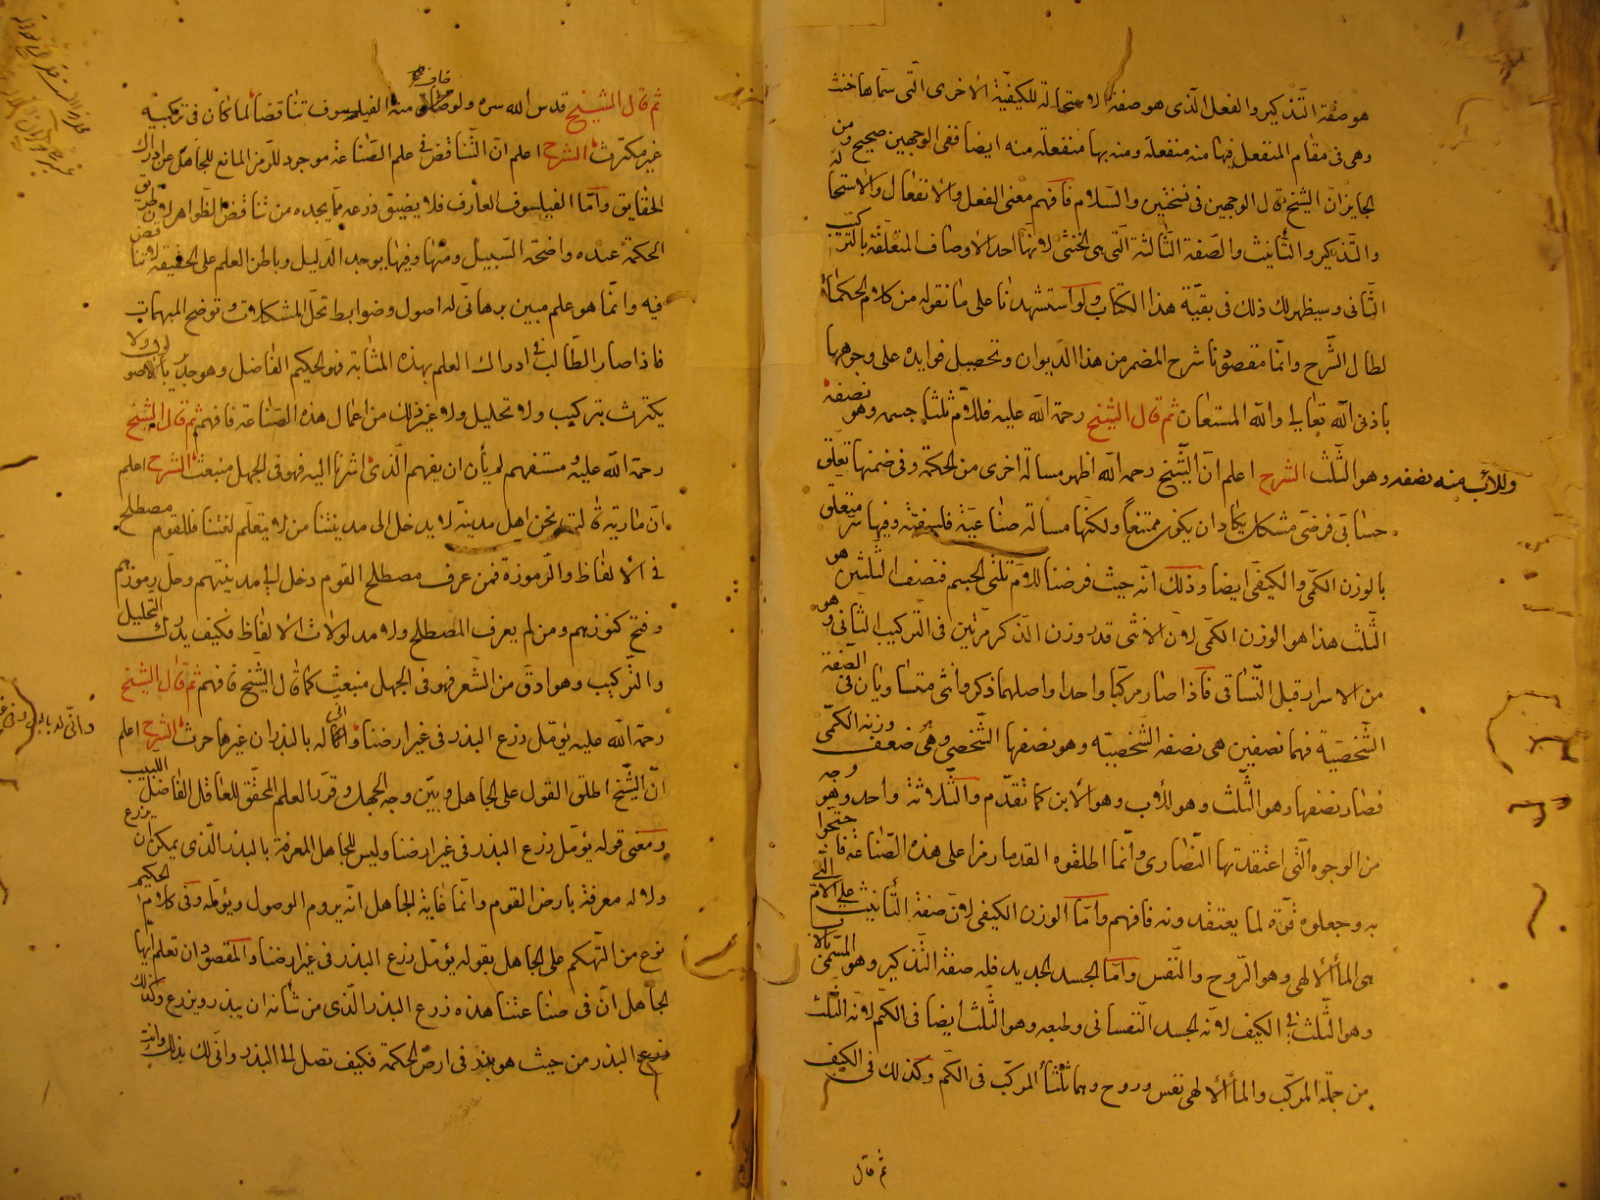 هو صفة التذكير والفعل الذى هو صفة الاستحالة للكيفية الاخرى التى سماها خنث
وهى فى مقام المنفعل فيها منه منفعلة ومنه بها منفعلة منه ايضا ففى الوجهين صحيح ومن
الجايز ان الشيخ قال الوجهين فى نسختين والسلام فافهم معنى الفعل والانفعال والاستحالة
والتذكير والتأنيث والصفة الثالثة التى هى الخنثى لانها احد الاوصاف المتعلقة بالتركيب
الثانى وسيظهر لك ذلك فى بقية هذا الكتاب ولو استشهدنا على ما نقوله من كلام الحكمأ
لطال الشرح وانما مقصودنا شرح المضمر من هذا الديوان وتحصيل فوايده على وجوهها
باذن الله تعالى والله المستعان ثم قال الشيخ رحمة الله عليه فللام ثلثا جسمه وهو نصفه
وللاب منه نصفه وهو الثلث الشرح اعلم ان الشيخ رحمه الله اظهر مسالة اخرى من الحكمة وفى ضمنها تعلق
حسابى فرضى مشكل يكاد ان يكون ممتنعا ولكنها مسالة صناعية فلسفية وفيها سر متعلق
بالوزن الكمى والكيفى ايضا وذلك انه حيث فرضنا للام ثلثى الجسم فنصف الثلثين هو
الثلث هذا هو الوزن الكمى لان الانثى قدر وزن الذكر مرتين فى التركيب الثانى وهو
من الاسرار قبل التساقى فاذا صار مركبا واحدا واصلهما ذكر وانثى متساويان فى الصفة
الشخصية فهما نصفين هى نصفه الشخصية وهو نصفها الشخصى وهى ضعف وزنه الكمى
فصار نصفها وهو الثلث وهو للاب وهو الابن كما تقدم والثلاثة واحد وهو وجه
من الوجوه التى اعتقدتها النصارى وانما اطلقوه القدما رمزا على هذه الصناعة فاحتجوا
به وجعلوه قوة لما يعتقدونه فافهم واما الوزن الكيفى لان صفة التأنيث على الام التى
هى المأ الالهى وهو الروح والنفس واما الجسد الجديد فله صفة التذكير وهو المسمى بالاب
وهو الثلث فى الكيف لانه الجسد النفسانى وطبعه وهو الثلث ايضا فى الكم لانه الثلث
من جملة المركب والمأ الالهى نفس وروح وهما ثلثأ المركب فى الكم وكذلك فى الكيف
ثم قال
ثم قال الشيخ قدس الله سره ولو خاف منه الفيلسوف تناقضا لما كان فى تركيبه
غير مكترث الشرح اعلم ان التناقض فى علم الصناعة موجود للرمز المانع للجاهل عن ادراك
الحقايق واما الفيلسوف العارف فلا يضيق ذرعه بما يجده من تناقض الظواهر لان طريق
الحكمة عنده واضحة السبيل ومنها وفيها يوجد الدليل وباطن العلم على الحقيقة لا تناقض
فيه وانما هو علم مبين برهانى له اصول وضوابط تحل المشكلات وتوضح المبهمات
فاذا صار الطالب فى ادراك العلم بهذه المثابة فهو الحكيم الفاضل وهو جدير بان لا
يكترث بتركيب ولا تحليل ولا غير ذلك من اعمال هذه الصناعة فافهم ثم قال الشيخ
رحمة الله عليه مستفهم لم يأن ان يفهم الذى اشرنا اليه فهو فى الجهل منبعث الشرح اعلم
ان مارية قالت نحن اهل مدينة لا يدخل الى مدينتنا من لا يتعلم لغتنا فللقوم مصطلح
فى الالفاظ والرموز فمن عرف مصطلح القوم دخل الى مدينتهم وحل رموزهم
وفتح كنوزهم ومن لم يعرف المصطلح ولا مدلولات الالفاظ فكيف يدرك التحليل
والتركيب وهو ادق من الشعر فهو فى الجهل منبعث كما قال الشيخ فافهم ثم قال الشيخ
رحمة الله عليه يؤمل زرع البذر فى غير ارضنا وانى له بالبذر ان غيرها حرث الشرح اعلم
ان الشيخ اطلق القول على الجاهل وبين وجه الجهل وقرر العلم المحقق للعاقل الفاضل اللبيب
ومعنى قوله يؤمل زرع البذر فى غير ارضنا وليس للجاهل المعرفة بالبذر الذى يمكن ان يزرع
ولا له معرفة بارض القوم وانما غاية الجاهل انه يروم الوصول ويؤمله وفى كلام الحكيم
نوع من التهكم على الجاهل بقوله يؤمل زرع البذر فى غير ارضنا والمقصود ان تعلم ايها
الجاهل ان فى صناعتنا هذه زرع البذر الذى من شأنه ان يبذر ويزرع وكذلك
زرع البذر من حيث هو بذر فى ارض الحكمة فكيف تصل الى البذر وانى لك بذلك وانت